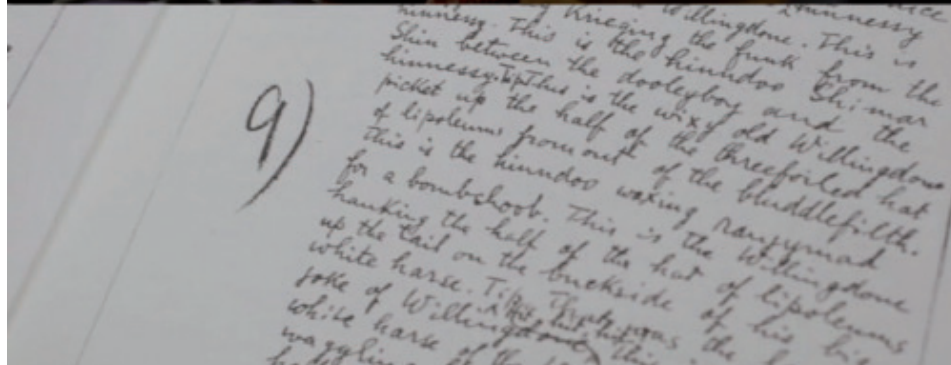 hinnessy
Willingdone. This is
hinnessy. Krieging the funk from the
This is the hinndoo Shimar
Shin between the dooleyboy and the
hinnessy. Tip. This is the wixy old Willingdone
picket up the half of the threefoiled hat
of lipoleums fromoud of the bluddlefilth.
This is the hinndoo waxing ranjymad
for a bombshoob. This is the Willingdone
hanking the half of the hat of lipoleums
up the tail on the buckside of his big
white harse. Tip. That was the
joke of Willingdone. This
white harse of the
waggling
9)